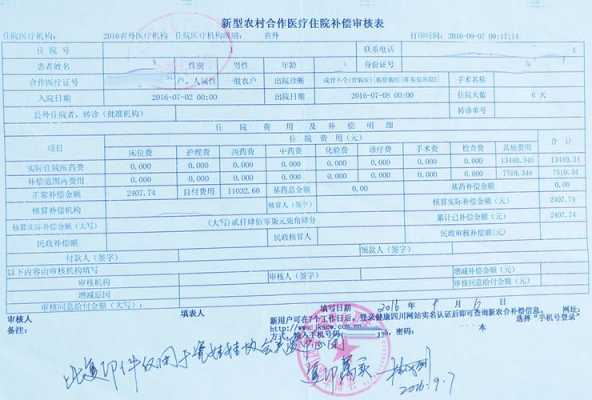 新型农村合作医疗住院补偿审核表
住院医疗机构: 2016省外医疗机构 住院医疗机构级别: 省外 打印时间: 2016-09-07 09:17:14
住院号 联系电话
患者姓名 性别 男性 年龄 身份证号
合作医疗证号 户、人属性 一般农户 出院诊断 手术名称
入院日期 2016-07-02 00:00 出院日期 2016-07-08 00:00 住院天数 6 天
县外住院者,转诊(批准机构) 转诊单号
住 院 费 用 及 补 偿 明 细
项目 住 院 费 用(元)
床位费 护理费 西药费 中药费 化验费 诊疗费 手术费 检查费 其他费用 合计
实际住院医药费 0.000 0.000 0.000 0.000 0.000 0.000 0.000 0.000 13440.340 13440.34
补偿范围内费用 0.000 0.000 0.000 0.000 0.000 0.000 0.000 0.000 7510.340 7510.34
正常补偿金额 2407.74 自付费用 11032.60 基药总金额 0.00 基药补偿金额 0.00
核算补偿机构 核算人(签字) 核算实际补偿金额(元) 2407.74
核算实际补偿金额(大写) (大写)贰仟肆佰零柒元柒角肆分 累计已补偿金额(元) 2407.74
民政补偿额 民政核算人 民政审核补偿额
付款人(签字) 领款人(签字)
以下内容由审核机构填写
审核机构 审核人(签字) 增减补偿金额(元)
增减原因 审核同意给付金额(元)
审核同意给付金额(大写):
审核人 填表人 填写日期 2016 年 9 月 6 日
备注: 新用户可在7个工作日后,登录健康四川网站实名认证后即可查询新农合补偿信息。 网址:
方式,输入手机号码: 选择 "手机号登录"
此复印件仅用于
复印属实
2016.9.7